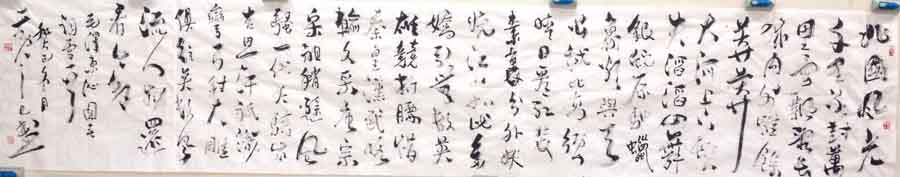 北國風光
千里冰封萬
里雪飄望長
城內外惟餘
莽莽
大河上下頓
失滔滔山舞
銀蛇原馳蠟
象欲與天
公試比高須
晴日看紅裝
素裹分外妖
嬈江山如此多
嬌引無數英
雄競折腰惜
秦皇漢武略
輸文采唐宗
宋祖稍遜風
騷一代天驕成
吉思汗祇識
彎弓射大雕
俱往矣數風
流人物還
看今朝
毛澤東沁園春
詞雪
癸巳年月